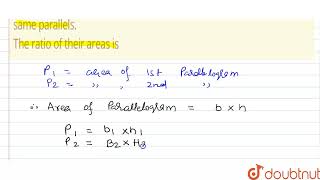 same parallels.
The ratio of their areas is
P1 = area of 1st Parallelogram
P2 = ,, ,, 2nd ,,
∴ Area of Parallelogram = b × h
P1 = b1 × h1
P2 = B2 × H2
doubtnut